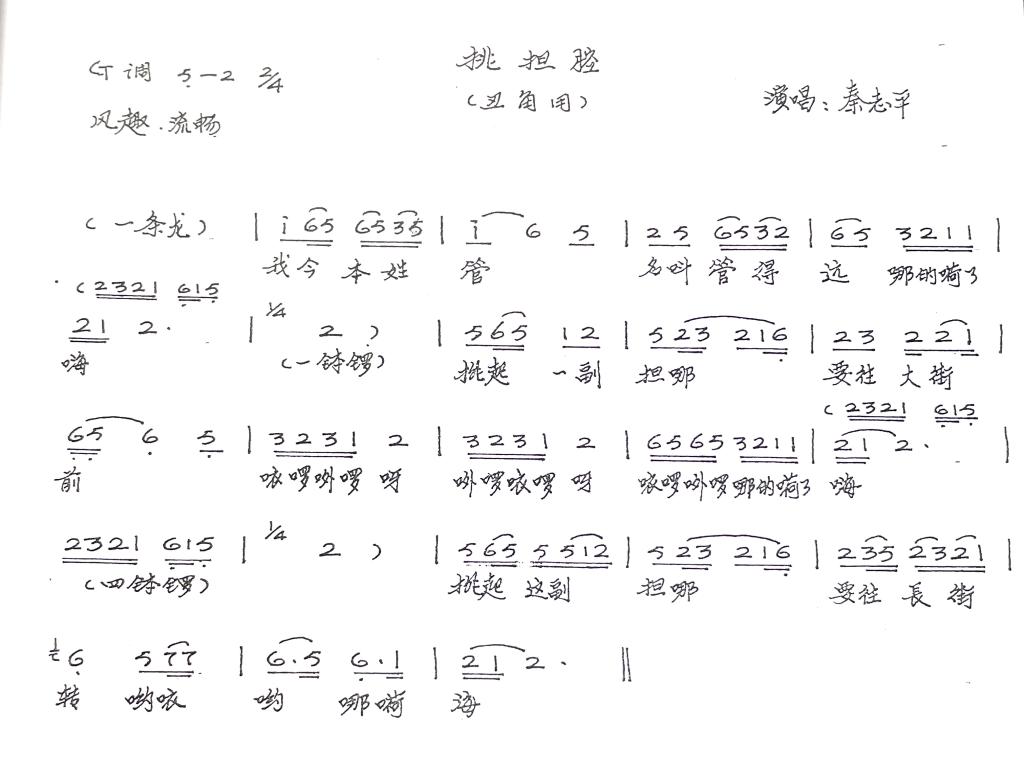 挑担腔
G调 5—2 2/4
(丑角用)
演唱：秦志平
风趣.流畅
(一条龙) | i 65 6535 | i 6 5 | 25 6532 | 65 3211 |
我今 本姓 管 名叫 管得 远 哪的嗬了
(2321 615
21 2· | 1/4 2 ) | 565 12 | 523 216 | 23 221 |
嗨 (一钵锣) 挑起 一副 担哪 要往 大街
(2321 615
65 6 5 | 3231 2 | 3231 2 | 6565 3211 | 21 2· |
前 咴啰咿啰 呀 咿啰咴啰 呀 咴啰咿啰哪的嗬了 嗨
2321 615 | 1/4 2 ) | 565 5512 | 523 216 | 235 2321 |
(四钵锣) 挑起 这副 担哪 要往 長街
6 577 | 6·5 6·1 | 21 2· ‖
转 哟咴 哟 哪嗬 海